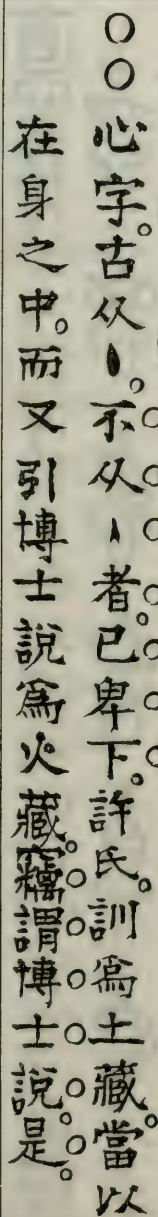 ○○心字。古从⬮。不从丶者。已卑下。許氏。訓爲土藏。當以
在身之中。而又引博士說爲火藏。竊謂博士說是。